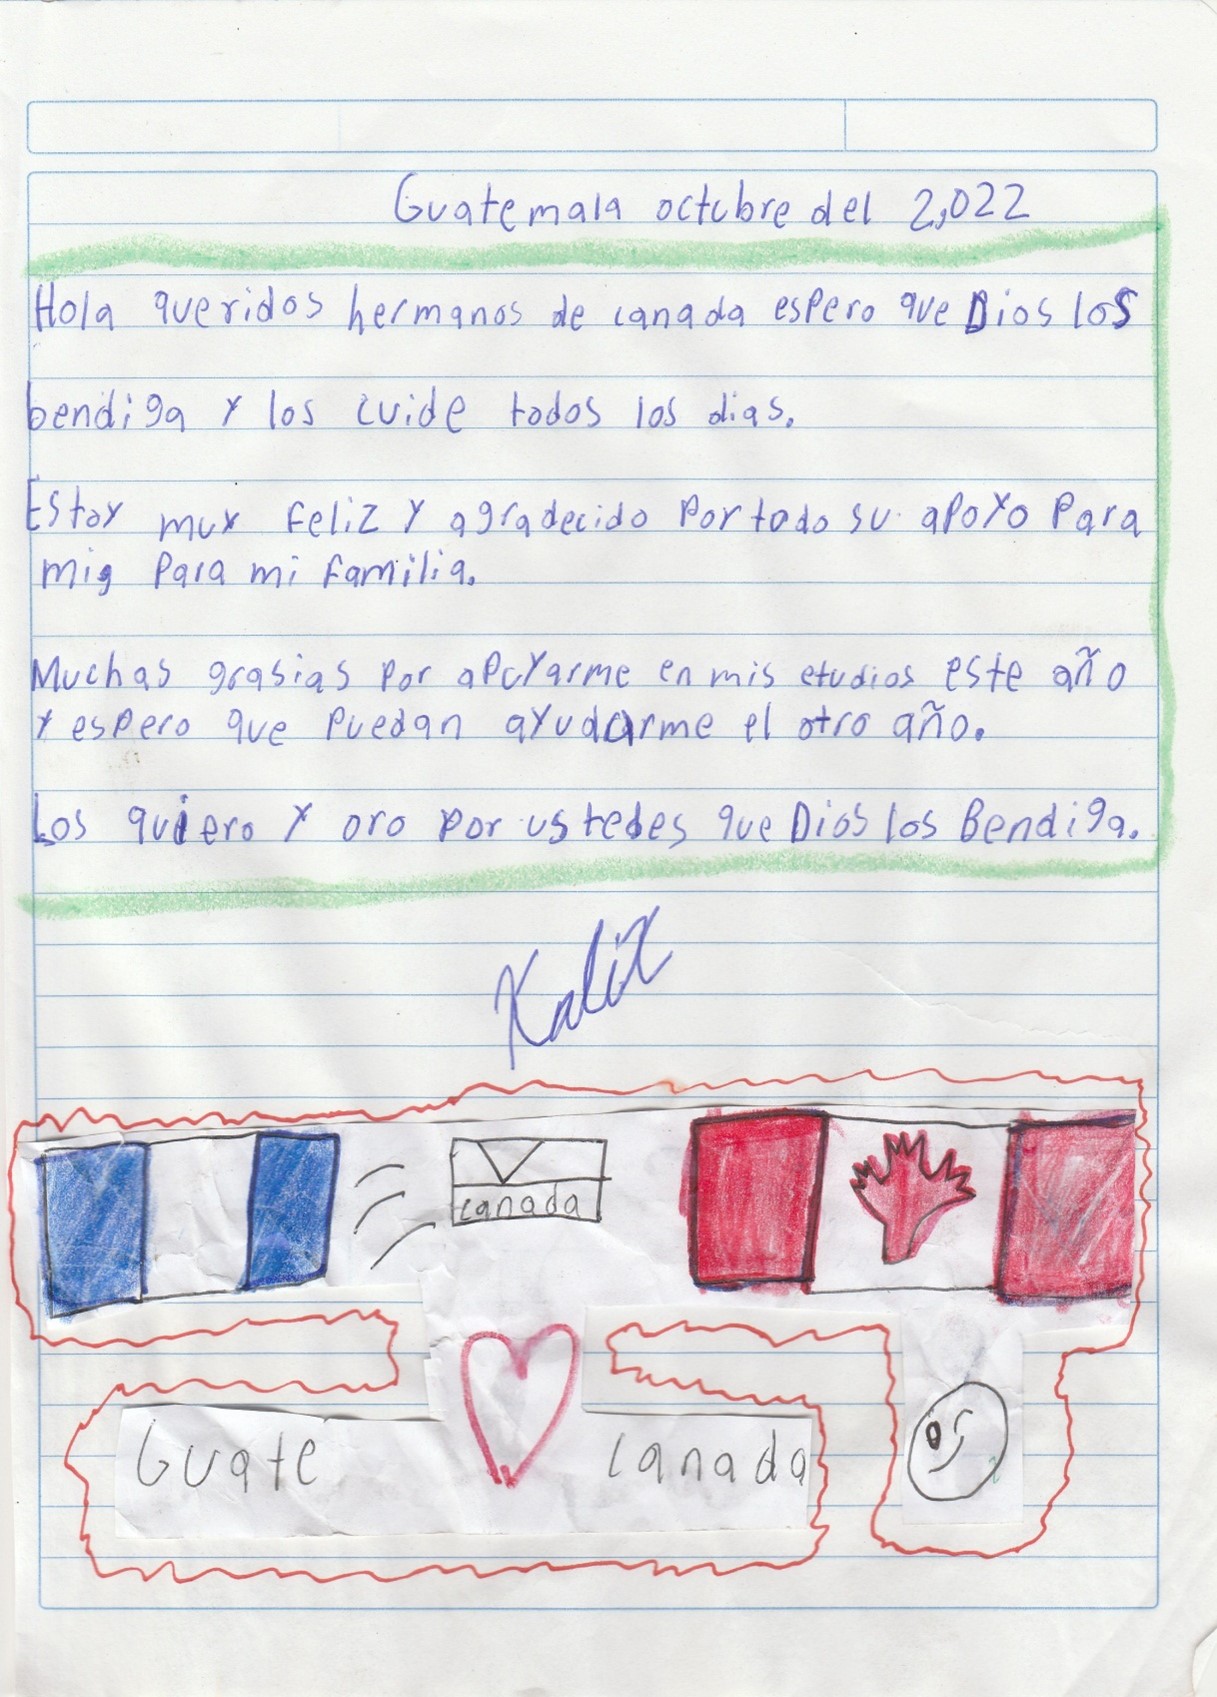 Guatemala octubre del 2,022
Hola queridos hermanos de canada espero que Dios los
bendiga y los cuide todos los dias.
Estoy muy feliz y agradecido por todo su apoyo para
mi y para mi familia.
Muchas grasias por apoyarme en mis etudios este año
y espero que puedan ayudarme el otro año.
Los quiero y oro por ustedes que Dios los Bendiga.
Kalix
canada
Guate canada